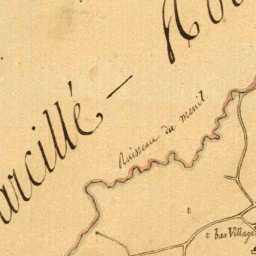 arcillé –
Ruisseau du menil
bas Village